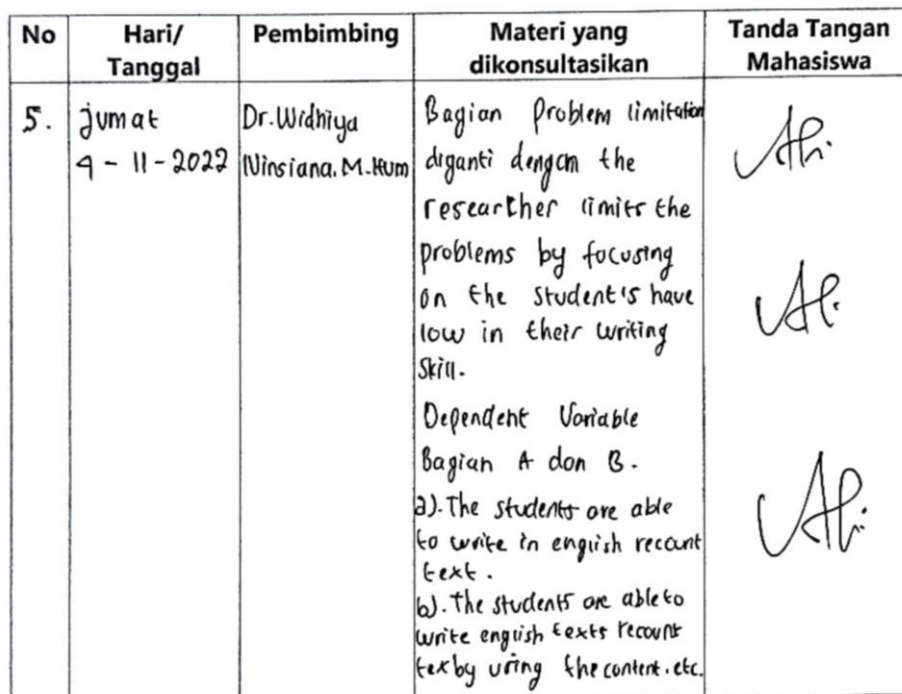 No Hari/ Pembimbing Materi yang Tanda Tangan
Tanggal dikonsultasikan Mahasiswa
5. jumat Dr. Widhiya Bagian problem limitation
4 - 11 - 2022 Ninsiana. M. Hum diganti dengan the
researcher limits the
problems by focusing
on the student's have
low in their writing
skill.
Dependent Variable
Bagian A dan B.
a). The students are able
to write in english recount
text.
b). The students are able to
write english texts recount
tex by using the content. etc.